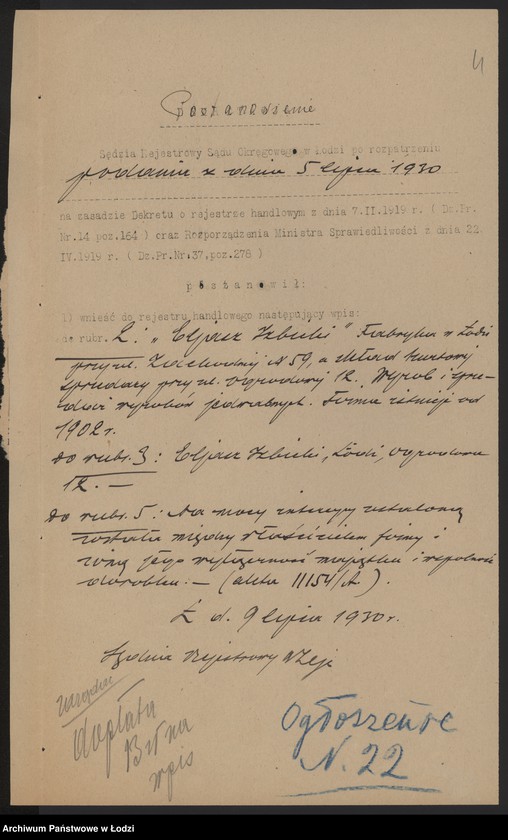 4
Postanowienie
Sędzia Rejestrowy Sądu Okręgowego w Łodzi po rozpatrzeniu
podania z dnia 5 lipca 1930
na zasadzie Dekretu o rejestrze handlowym z dnia 7.II.1919 r. ( Dz.Pr.
Nr.14 poz.164 ) oraz Rozporządzenia Ministra Sprawiedliwości z dnia 22
IV.1919 r. ( Dz.Pr.Nr.37,poz.278 )
p o s t a n o w i ł :
1) wnieść do rejestru handlowego następujący wpis:
do rubr. 2: „Eljasz Izbicki" Fabryka w Łodzi
przy ul. Zachodniej N 59, a skład hurtowej
sprzedaży przy ul. Ogrodowej 12. Wyrób i sprze-
daż wyrobów jedwabnych. Firma istnieje od
1902 r.
do rubr. 3: Eljasz Izbicki, Łódź, Ogrodowa
12. —
do rubr. 5: Na mocy intercyzy ustaloną
została między właścicielem firmy i
żoną jego wyłączność majątku i wspólność
dorobku. — (akta 11154/A).
Ł. d. 9 lipca 1930 r.
Sędzia Rejestrowy
dopłata
na
wpis
Ogłoszenie
N. 22
Archiwum Państwowe w Łodzi